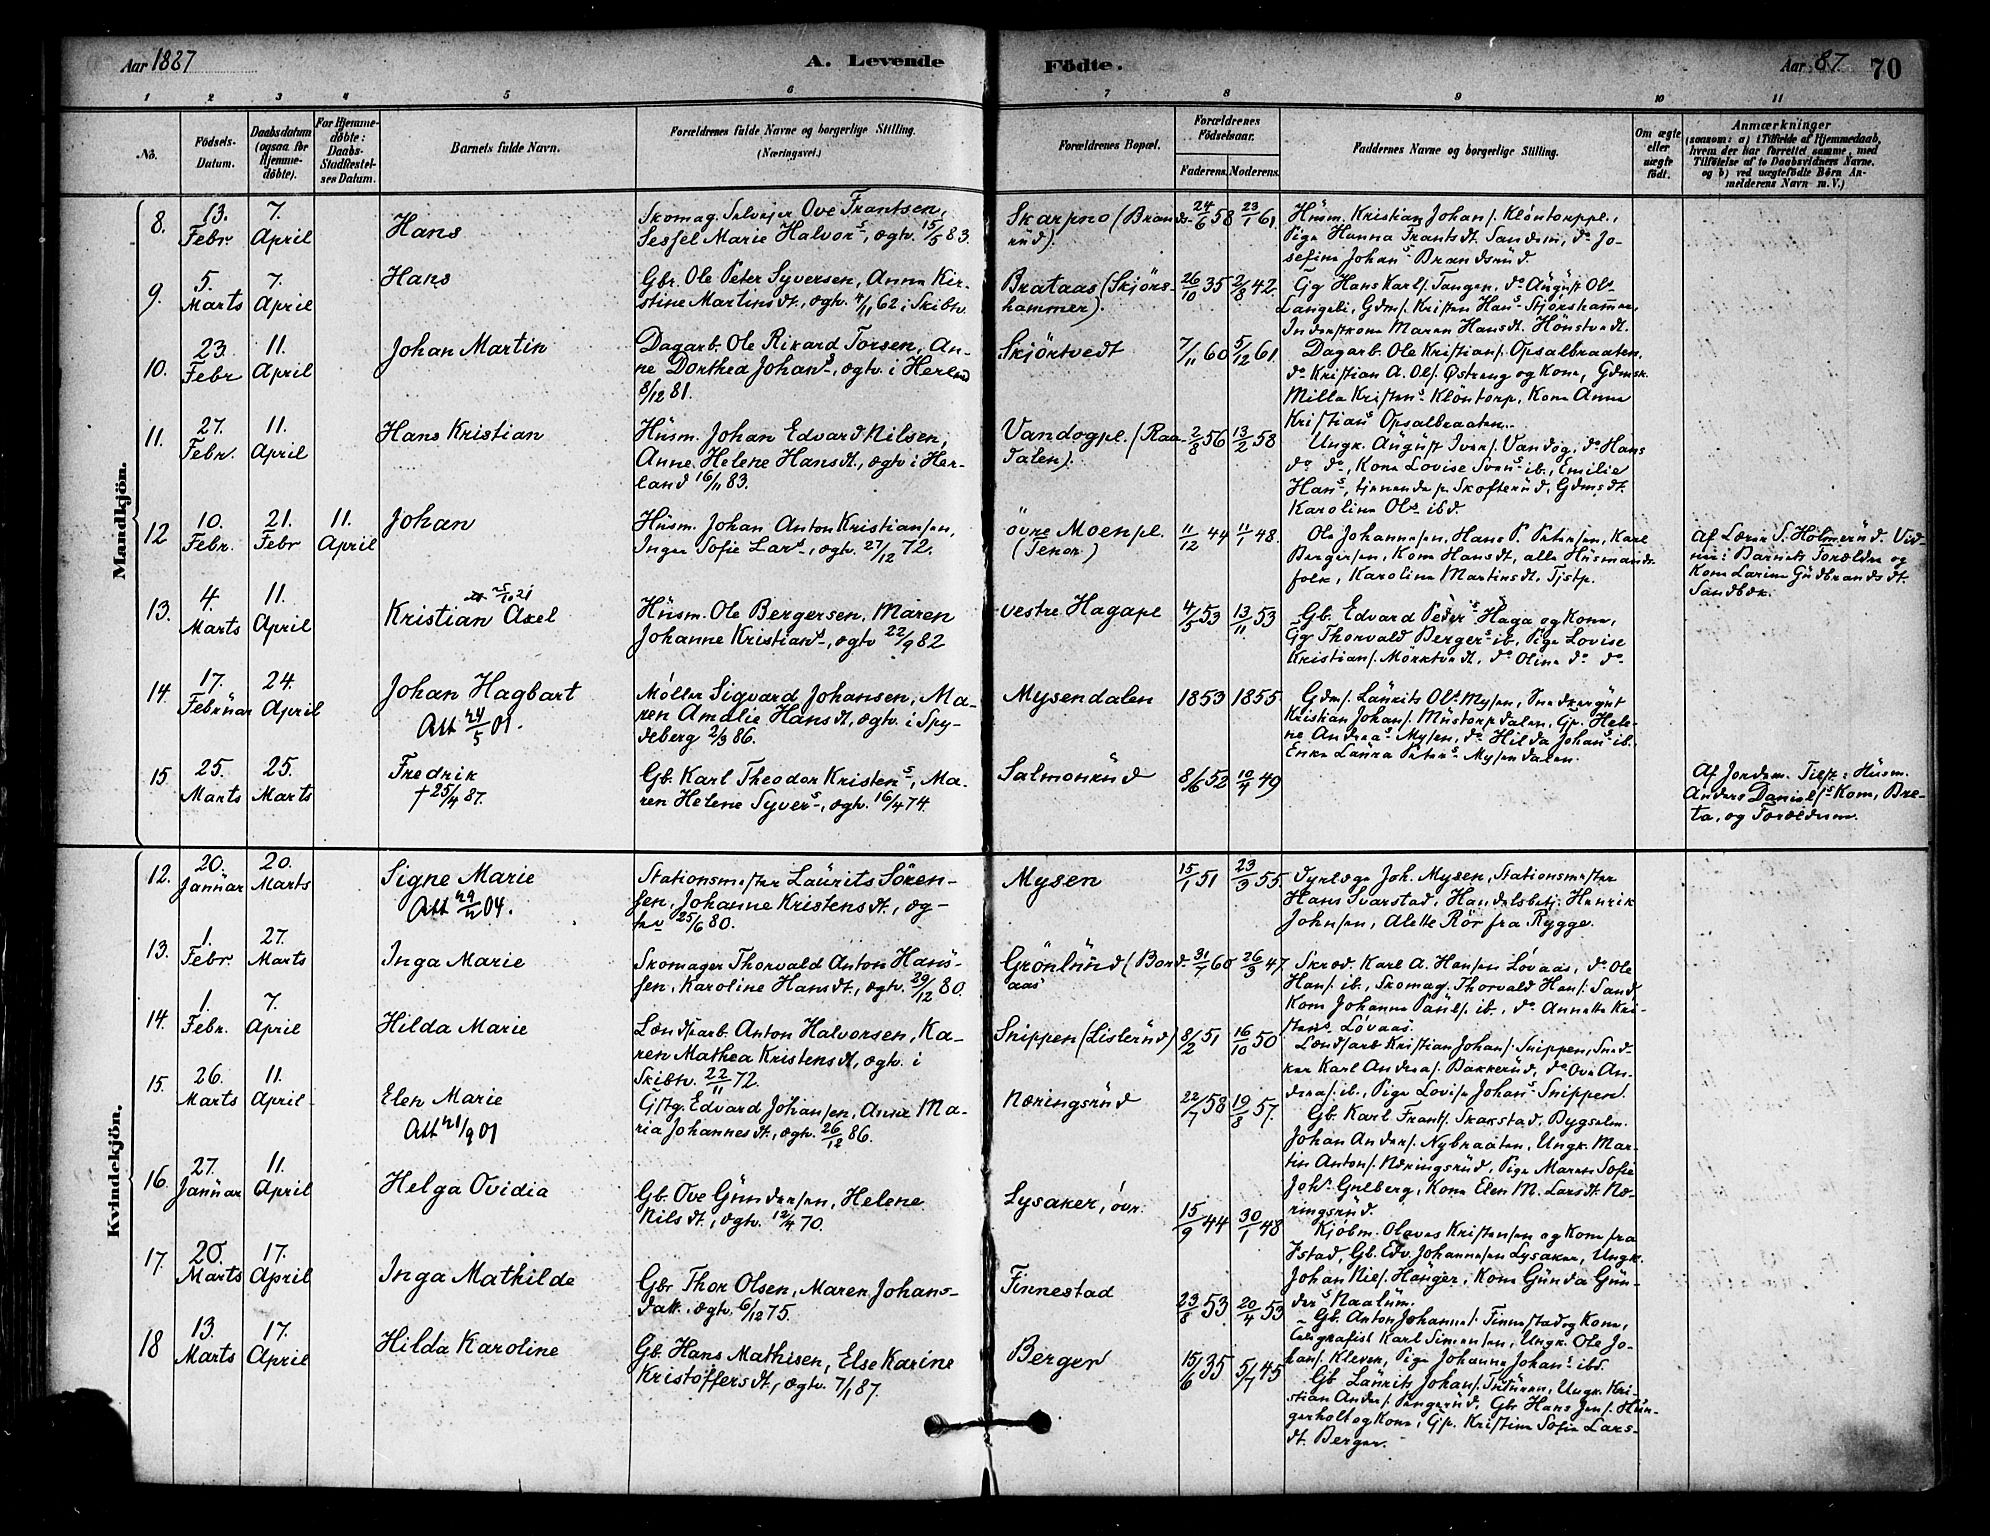 Aar 1887
A. Levende
Födte.
Aar 87
70
1 2 3 4 5 6 7 8 9 10 11
No.
Födsels-Datum.
Daabsdatum (ogsaa for Hjemme-döbte).
For Hjemme-döbte: Daabs-Stadfæstel-ses Datum.
Barnets fulde Navn.
Forældrenes fulde Navne og borgerlige Stilling.
(Næringsvei.)
Forældrenes Bopæl.
Forældrenes Födselsaar.
Faderens. Moderens.
Faddernes Navne og borgerlige Stilling.
Om ægte eller uægte födt.
Anmærkninger
(saasom: a) i Tilfælde af Hjemmedaab,
hvem der har forrettet samme, med
Tilföielse af to Daabsvidners Navne,
og b) ved uægtefödte Börn An-
melderens Navn m. V.)
Mandkjön.
8. 13. Febr 7. April
Hans
Ove Frantsen,
Sessel Marie Halvors, ægtv. 15/5 83.
Skarpno (Brands-
rüd).
24/6 58 23/1 61
Hüsm. Kristian Johans. Klöntorppl.,
Pige Hanna Frantsdt. Sandem, do Jo-
sefine Johans Brandsrüd.
9. 5. Marts 7. April
Hans
Gbr. Ole Peter Syversen, Anna Kir-
stine Martinsdt., ægtv. 4/11 62 i Skibtv.
Brataas (Skjörs-
hammer).
26/10 35 2/8 42.
Gg Hans Karls. Tangen, do Aügüst Ols
Langeli, Gdms. Kristen Hans Skjörshammer,
Maren Hansdt. Hönstvedt.
10. 23. Febr 11. April
Johan Martin
Dagarb. Ole Rikard Torsen, An-
ne Dorthea Johans, ægtv. i Herland
8/12 81.
Skjörtvedt
7/11 60 5/12 61
Dagarb. Ole Kristians. Opsalbraaten,
do Kristian A. Ols. Østreng og Kone, Gdmsk.
Milla Kristens Klöntorp, Kone Anna
Kristians Opsalbraaten.
11. 27. Febr. 11. April
Hans Kristian
Hüsm. Johan Edvard Nilsen,
Anne Helene Hansdt., ægtv i Her-
land 16/11 83.
Vandogpl. (Raa-
dalen).
2/8 56 13/2 58
Ungk. Aügüst Ivers. Vandog, do Hans
do do, Kone Lovise Svens ib., Emilie
Hans, tjenende p. Skofterüd, Gdmsdt.
Karoline Ols ibd.
12 10. Febr. 21. Febr 11. April
Johan
Hüsm. Johan Anton Kristiansen,
Inger Sofie Lars, ægtv. 27/12 72.
övre Moenpl.
(Tenor)
11/12 44 11/1 48.
Ole Johannesen, Hans P. Petersen, Karl
Bergersen, Kone Hansdt, alle Hüsmands-
folk, Karoline Martinsdt. Tjstp.
Af Lærer S. Hölmerüd. Vid-
ner: Barnets Forældre og
Kone Larine Güdbrandsdt.
Sandbæk.
13. 4. Marts 11. April
Kristian Axel
Hüsm. Ole Bergersen, Maren
Johanne Kristians, ægtv 22/9 82
vestre Hagapl
4/5 53 13/11 53
Gb. Edvard Peders Haga og Kone,
Gg Thorvald Bergers ib. Pige Lovise
Kristians. Mörktvedt. do Oline do do
14. 17. Febrüar 24. April
Johan Hagbart
Att 24/5 01.
Møller Sigvard Johansen, Ma-
ren Amalie Hansdt, ægtv. i Spy-
deberg 2/3 86.
Mysendalen
1853 1855
Gdms. Laürits Ols. Mysen,
Kristian Johans. Müstorpdalen, Gp. Hele-
ne Andreas Mysen, do Hilda Johans ib.
Enke Laüra Peters Mysendalen.
15 25. Marts 25. Marts
Fredrik
† 25/4 87.
Gb. Karl Theodor Kristens, Ma-
ren Helene Syvers, ægtv. 16/4 74.
Salmonrüd
8/6 52 10/4 49
Af Jordem. Tilst: Hüsm.
Anders Daniels Kone, Bre-
ta, og Forældrene.
Kvindekjön.
12. 20. Janüar 20. Marts
Signe Marie
Att 04.
Stationsmester Laürits Sören-
sen, Johanne Kristensdt., æg-
tev 25/6 80.
Mysen
15/1 51 23/3 55.
Dyrlæge Joh. Mysen, Stationsmester
Hans Svarstad, Handelsbetj. Henrik
Johnsen, Alette Rör fra Rygge.
13. 1. Febr. 27. Marts
Inga Marie
Skomager Thorvald Anton Han-
sen, Karoline Hansdt., ægtv. 29/12 80.
Grönlünd (Bord-
aas
31/7 60 26/3 47
Skræd. Karl A. Hansen Lövaas, do Ole
Hans. ib., Skomag. Thorvald Hans. Sand,
Kone Johanne Paüls. ib., do Annette Kri-
stens Lövaas.
14. 1. Febr. 7. April
Hilda Marie
Lændsarb. Anton Halvorsen, Ka-
ren Mathea Kristensdt, ægtv. i
Skibtv. 22/11 72.
Snippen (Listerüd)
8/2 51 16/10 50
Lændsarb Kristian Johans. Snippen, Sned-
ker Karl Andreas. Bakkerüd, do Ove An-
dreas. ib., Pige Lovise Johans Snippen.
15. 26. Marts 11. April
Elen Marie
Att 21/9 01
Gstg. Edvard Johansen, Anne Ma-
ria Johannesdt., ægtv. 26/12 86.
Næringsrüd
22/7 58 19/8 57.
Gb. Karl Frants. Skakstad, Bygselm.
Johan Anders. Nybraaten, Ungk. Mar-
tin Antons. Næringsrüd, Pige Maren Sofie
Johs. Gulberg, Kone Elen M. Larsdt. Næ-
ringsrüd.
16. 27. Janüar 11. April
Helga Ovidia
Gb. Ove Gündersen, Helene
Nilsdt., ægtv. 12/4 70.
Lysaker, övr.
15/9 44 30/1 48
Kjöbm. Olaves Kristensen og Kone fra
Istad, Gb. Edv. Johannesen Lysaker, Ungk.
Johan Niels. Haüger, Kone Günda Gün-
ders Naalüm.
17. 20. Marts 17. April
Inga Mathilde
Gbr Thor Olsen, Maren Johans-
datt. ægtv. 6/12 75.
Finnestad
23/8 53 20/4 53
Gb. Anton Johannes. Finnestad og Kone,
Karl Simensen, Ungk. Ole Jo-
hans. Kleven, Pige Johanne Johans ibd.
18 13. Marts 17. April
Hilda Karoline
Gb Hans Mathisen, Else Karine
Kristoffersdt, ægtv. 7/1 87.
Berger
15/6 35 5/7 45
Gb. Laürits Johans. Tritüren, Ungk. Kri-
stian Anders. Pengerüd, Gbr Hans Jens. Hün-
gerholt og Kone, Gp. Kristine Sofie Lars-
dt. Berger.